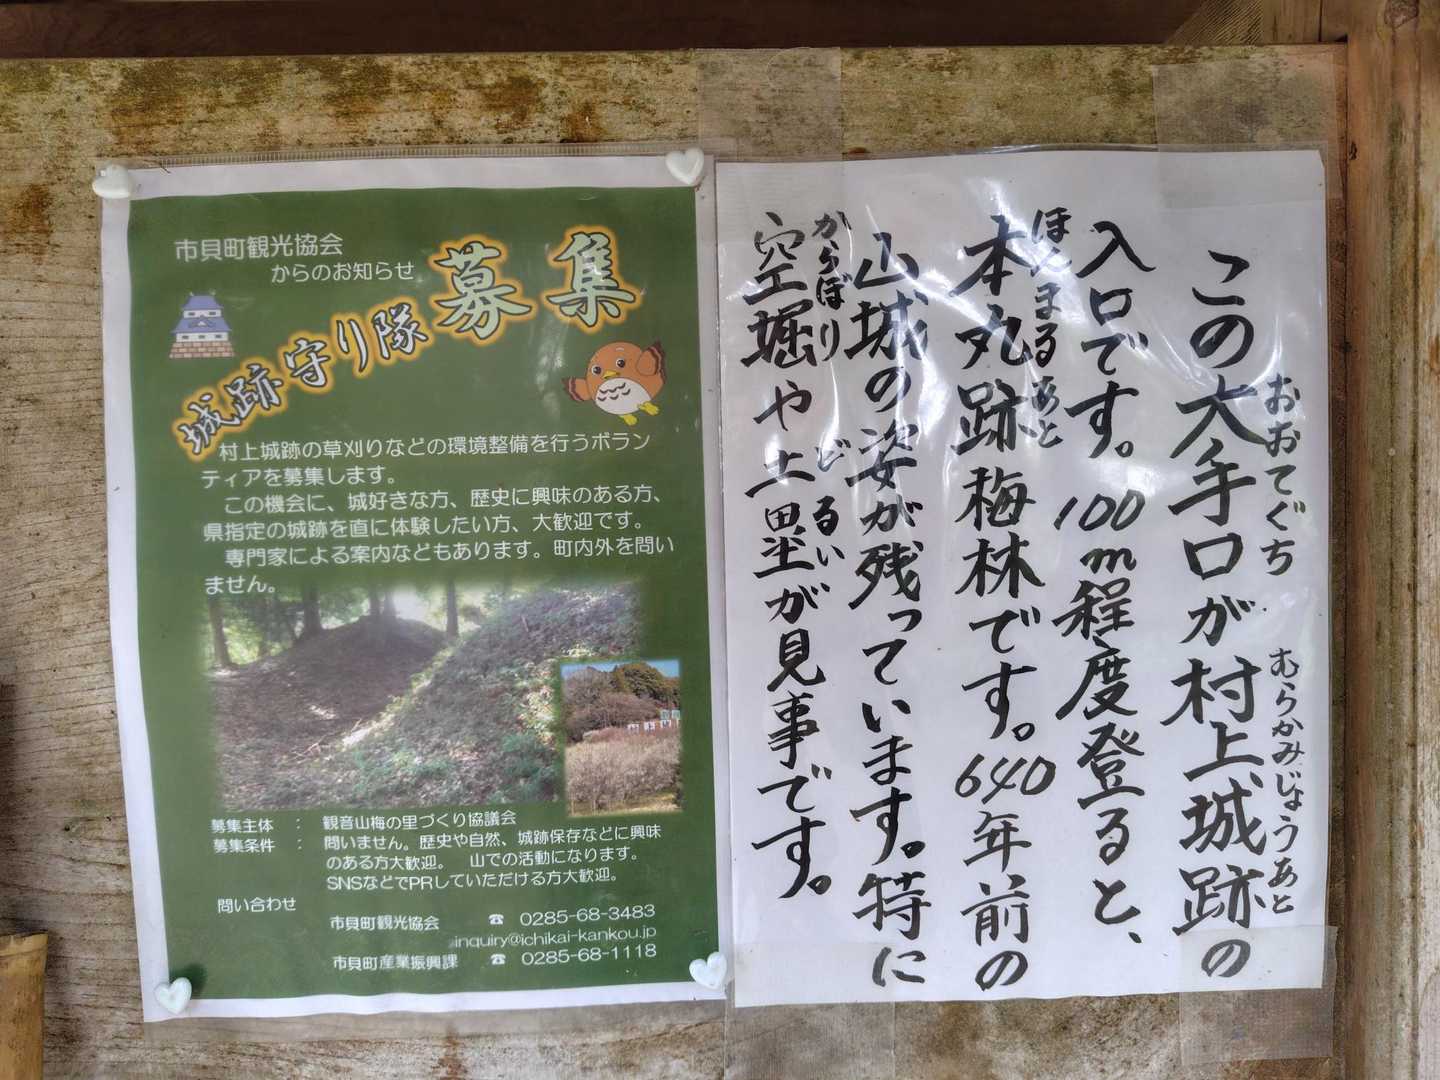 市貝町観光協会
からのお知らせ
城跡守り隊募集
村上城跡の草刈りなどの環境整備を行うボラン
ティアを募集します。
この機会に、城好きな方、歴史に興味のある方、
県指定の城跡を直に体験したい方、大歓迎です。
専門家による案内などもあります。町内外を問い
ません。
募集主体 ： 観音山梅の里づくり協議会
募集条件 ： 問いません。歴史や自然、城跡保存などに興味
のある方大歓迎。 山での活動になります。
SNSなどでPRしていただける方大歓迎。
問い合わせ
市貝町観光協会 ☎ 0285-68-3483
inquiry@ichikai-kankou.jp
市貝町産業振興課 ☎ 0285-68-1118
おおてぐち むらかみじょうあと
この大手口が村上城跡の
入口です。100m程度登ると、
ほんまるあと
本丸跡梅林です。640年前の
山城の姿が残っています。特に
からぼり どるい
空堀や土塁が見事です。